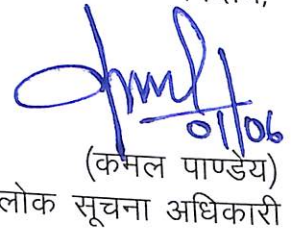 01/06
(कमल पाण्डेय)
लोक सूचना अधिकारी